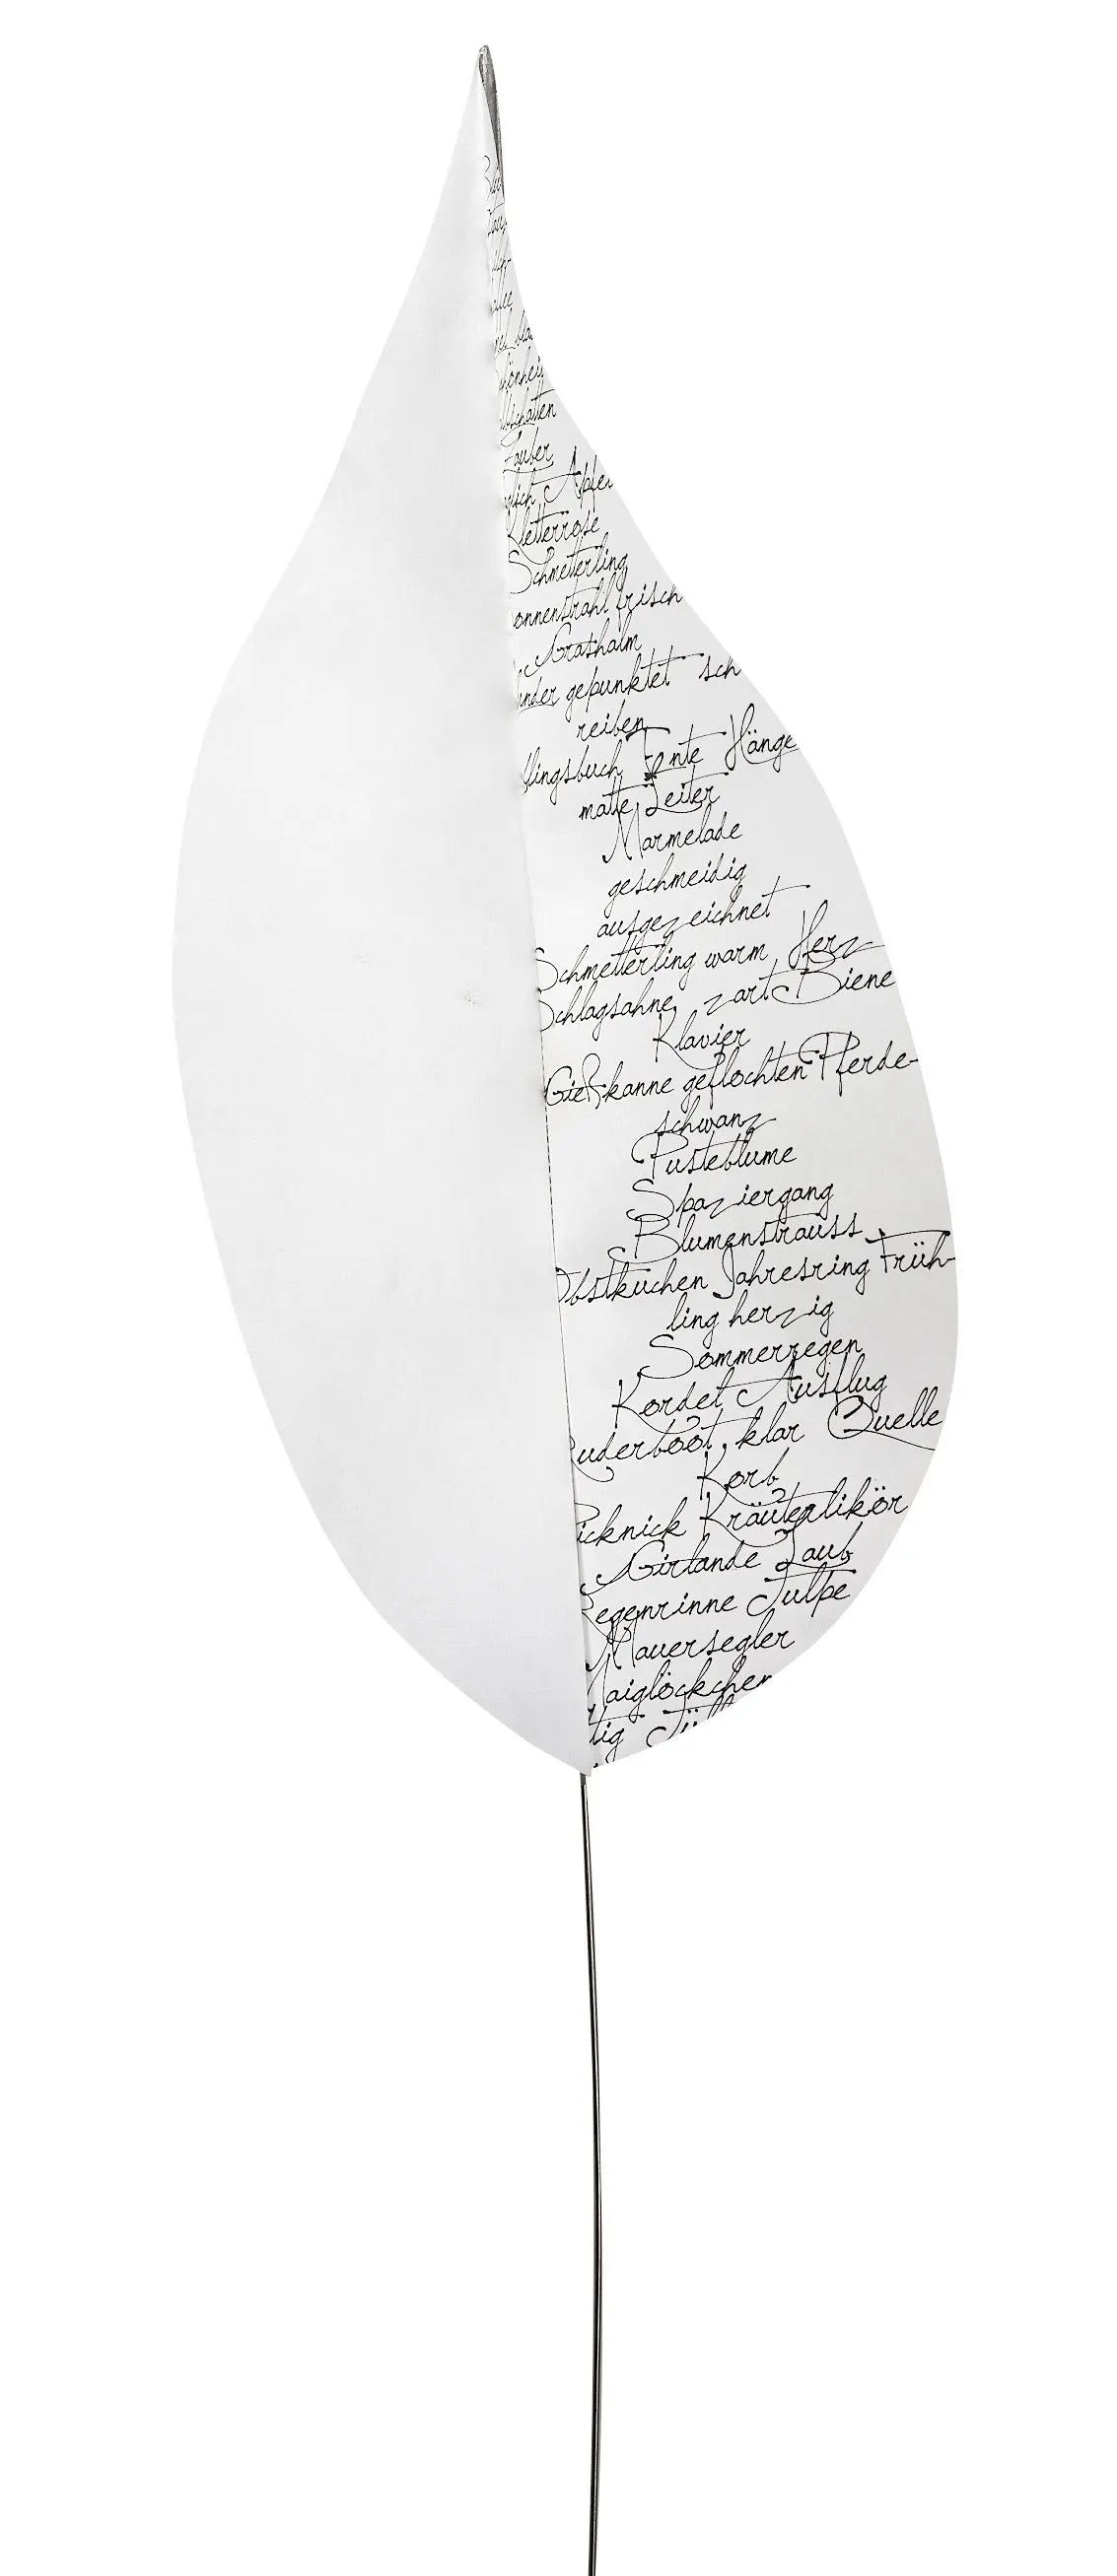 Zauber
Kletterrose
Schmetterling
frisch
Grashalm
gepunktet sch
reiben
Ente Hänge
matte Leiter
Marmelade
geschmeidig
ausgezeichnet
Schmetterling warm Herz
Schlagsahne zart Biene
Klavier
Gießkanne geflochten Pferde-
schwanz
Pusteblume
Spaziergang
Blumenstrauss
Obstkuchen Jahresring Früh-
ling herzig
Sommerregen
Kordel Ausflug
Ruderboot klar Quelle
Korb
Picknick Kräuterlikör
Girlande Laub
Regenrinne Tulpe
Mauersegler
Maiglöckchen